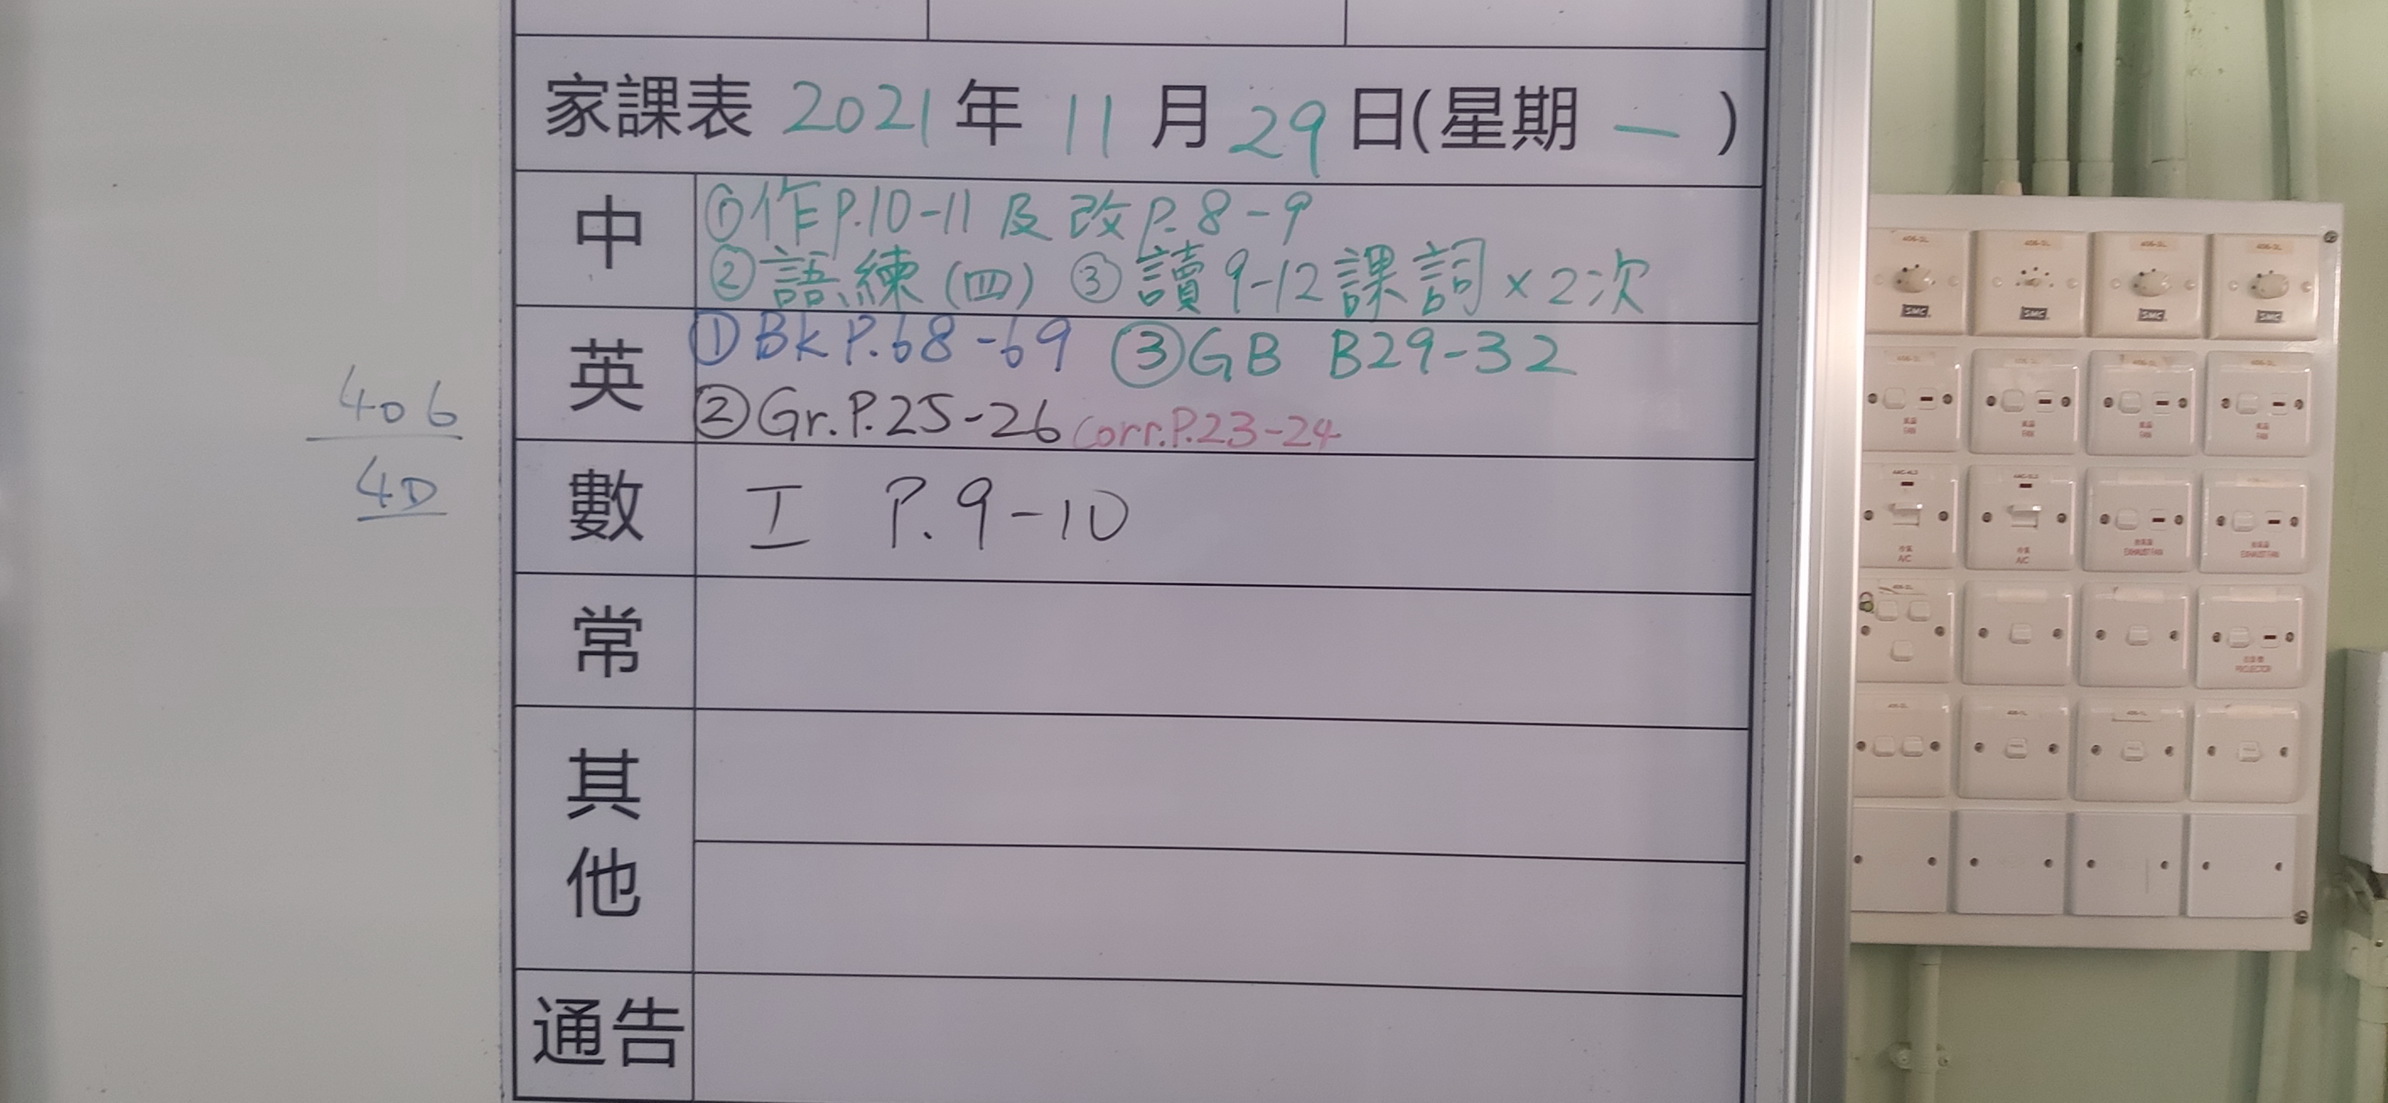 家課表 2021 年 11 月 29 日(星期 一 )
中
①作P.10-11 及 改 P.8-9
②語練(四) ③讀9-12課詞×2次
英
①BK P.68-69 ③GB B29-32
②Gr.P.25-26 Corr.P.23-24
數
I P.9-10
常
其他
通告
406
4D
SMC SMC SMC SMC